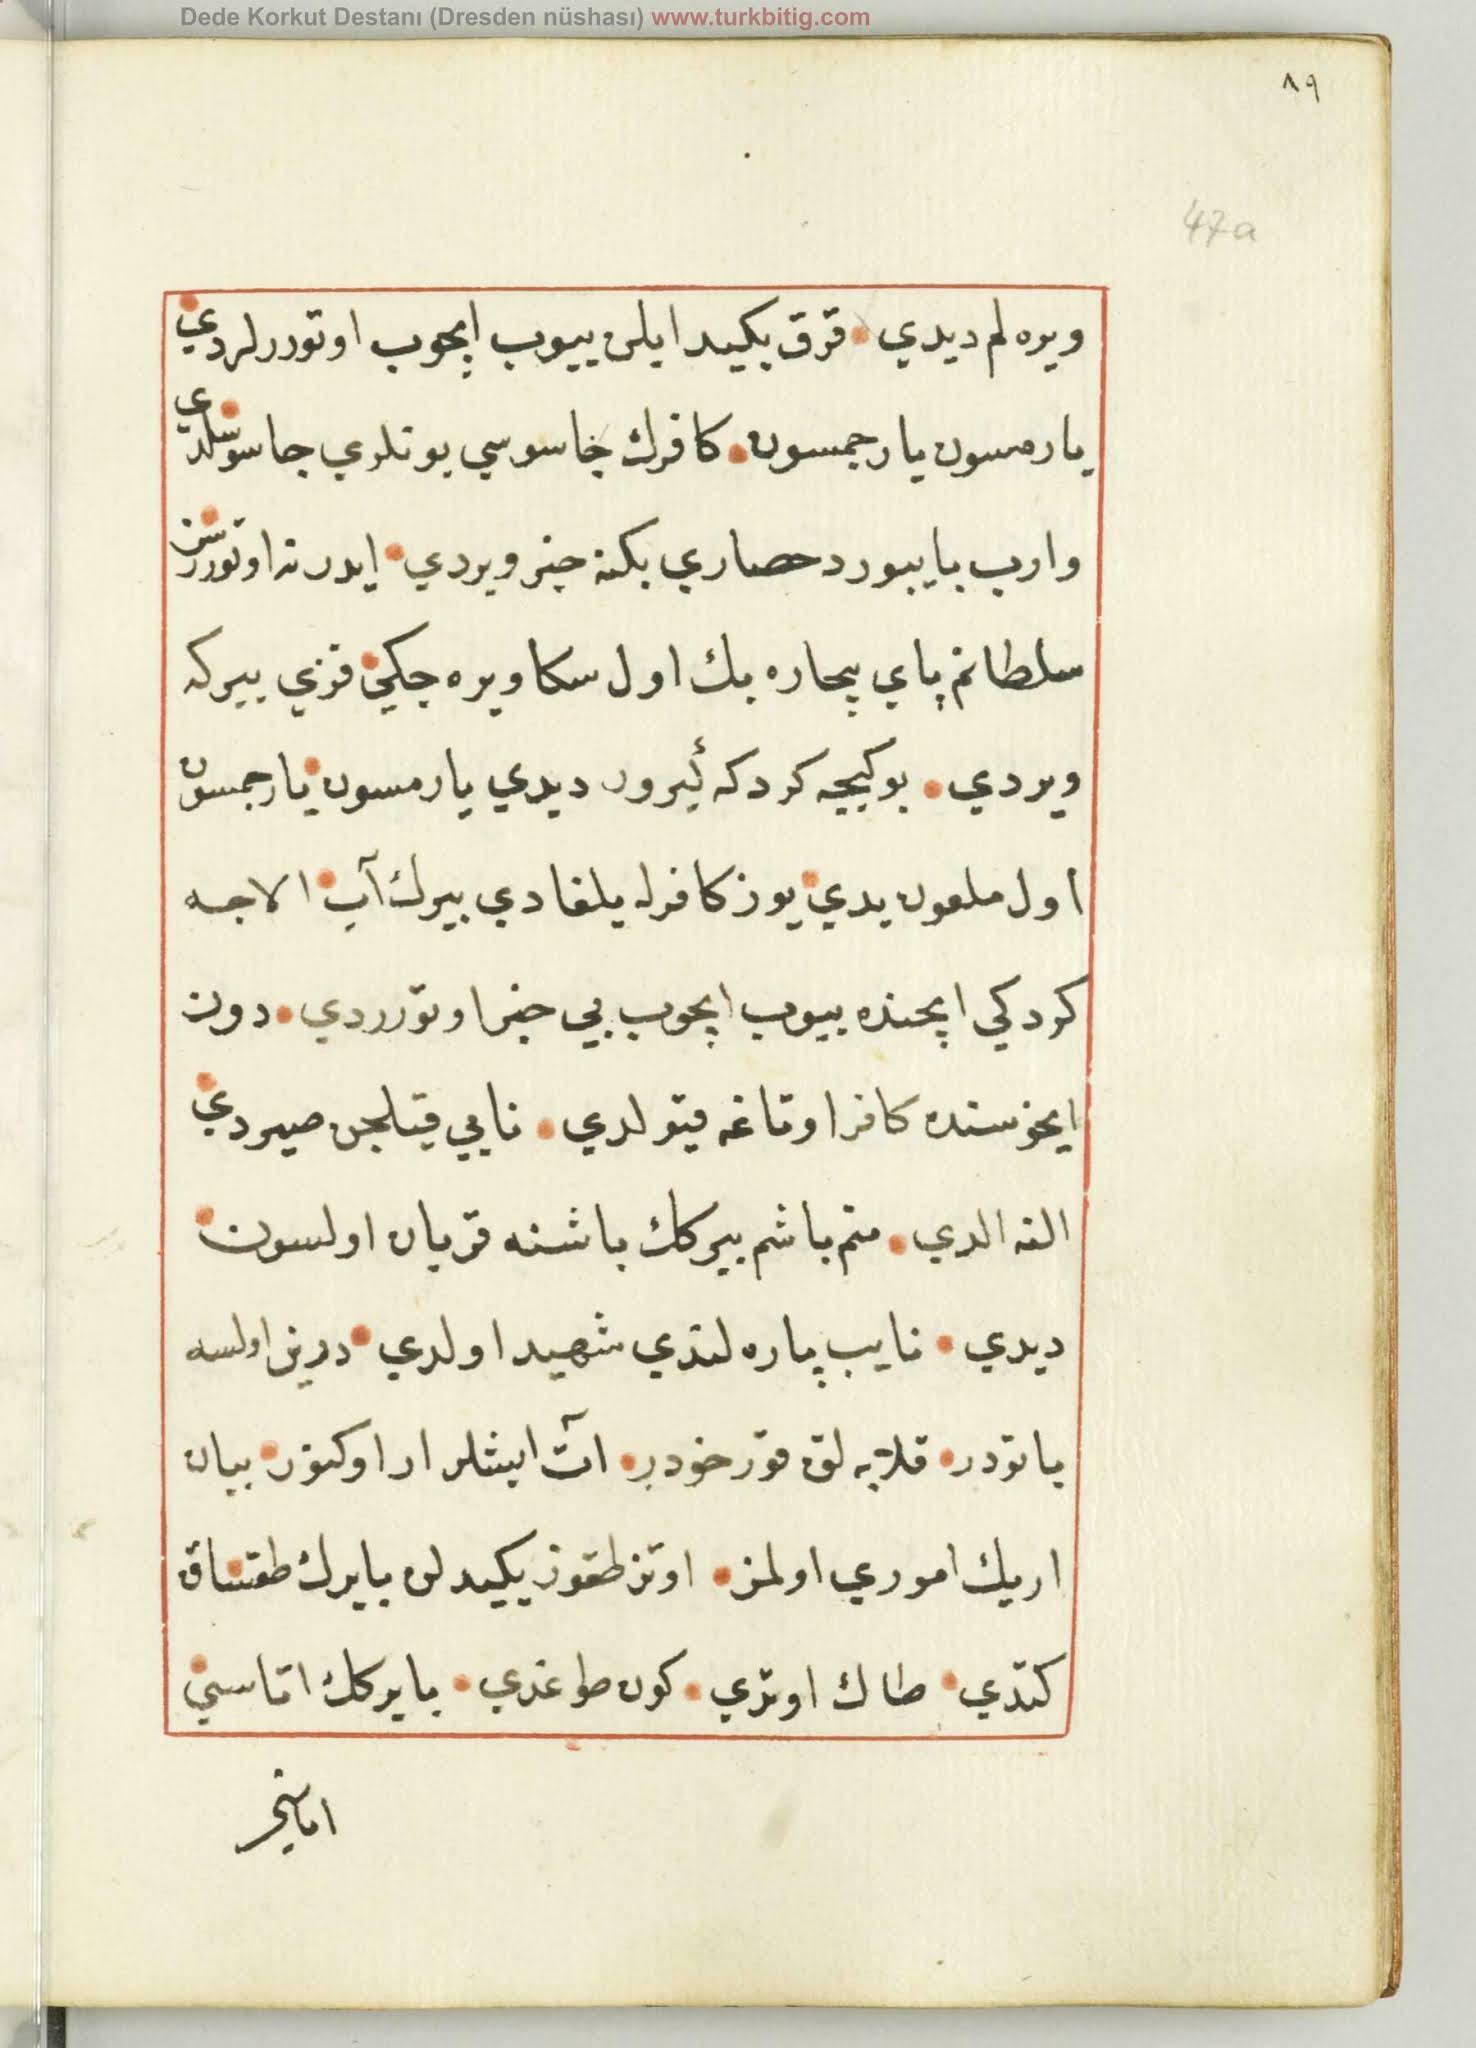 Dede Korkut Destanı (Dresden nüshası) www.turkbitig.com
٨٩
47a
ويره لم ديدي قرق يكيد ايلن ييوب ايچوب اوتوررلردي
يارمسون يارچمسون كافرك جاسوسي بونلري جاسوسلدي
وارب بايبورد حصاري بكنه خبر ويردي ايدر نه اوتوررسز
سلطانم پاي پيچاره بك اول سكا ويره جكي قزي بيركه
ويردي بو كيجه كردكه كيرور ديدي يارمسون يارچمسون
اول ملعون يدي يوز كافرله يلغادي بيرك آب الاجه
كردكي ايچنده ييوب ايچوب بي خبر اوتوررد‌ي دون
ايخوسنده كافر اوتاغه قيتولدي نايبي قيلجن صيردي
النه الدي منم باشم بيركك باشنه قربان اولسون
ديدي نايب پاره لندي شهيد اولدي درين اولسه
باتودر قلابه لق قورخودر آت ايشلر ار اوكنور بيان
اريك اموري اولمز اوتز طقوز يكيدلن بايرك طقتساق
كتدي طاك اوتدي كون طوغدي بايركك اتاسي
اناسي